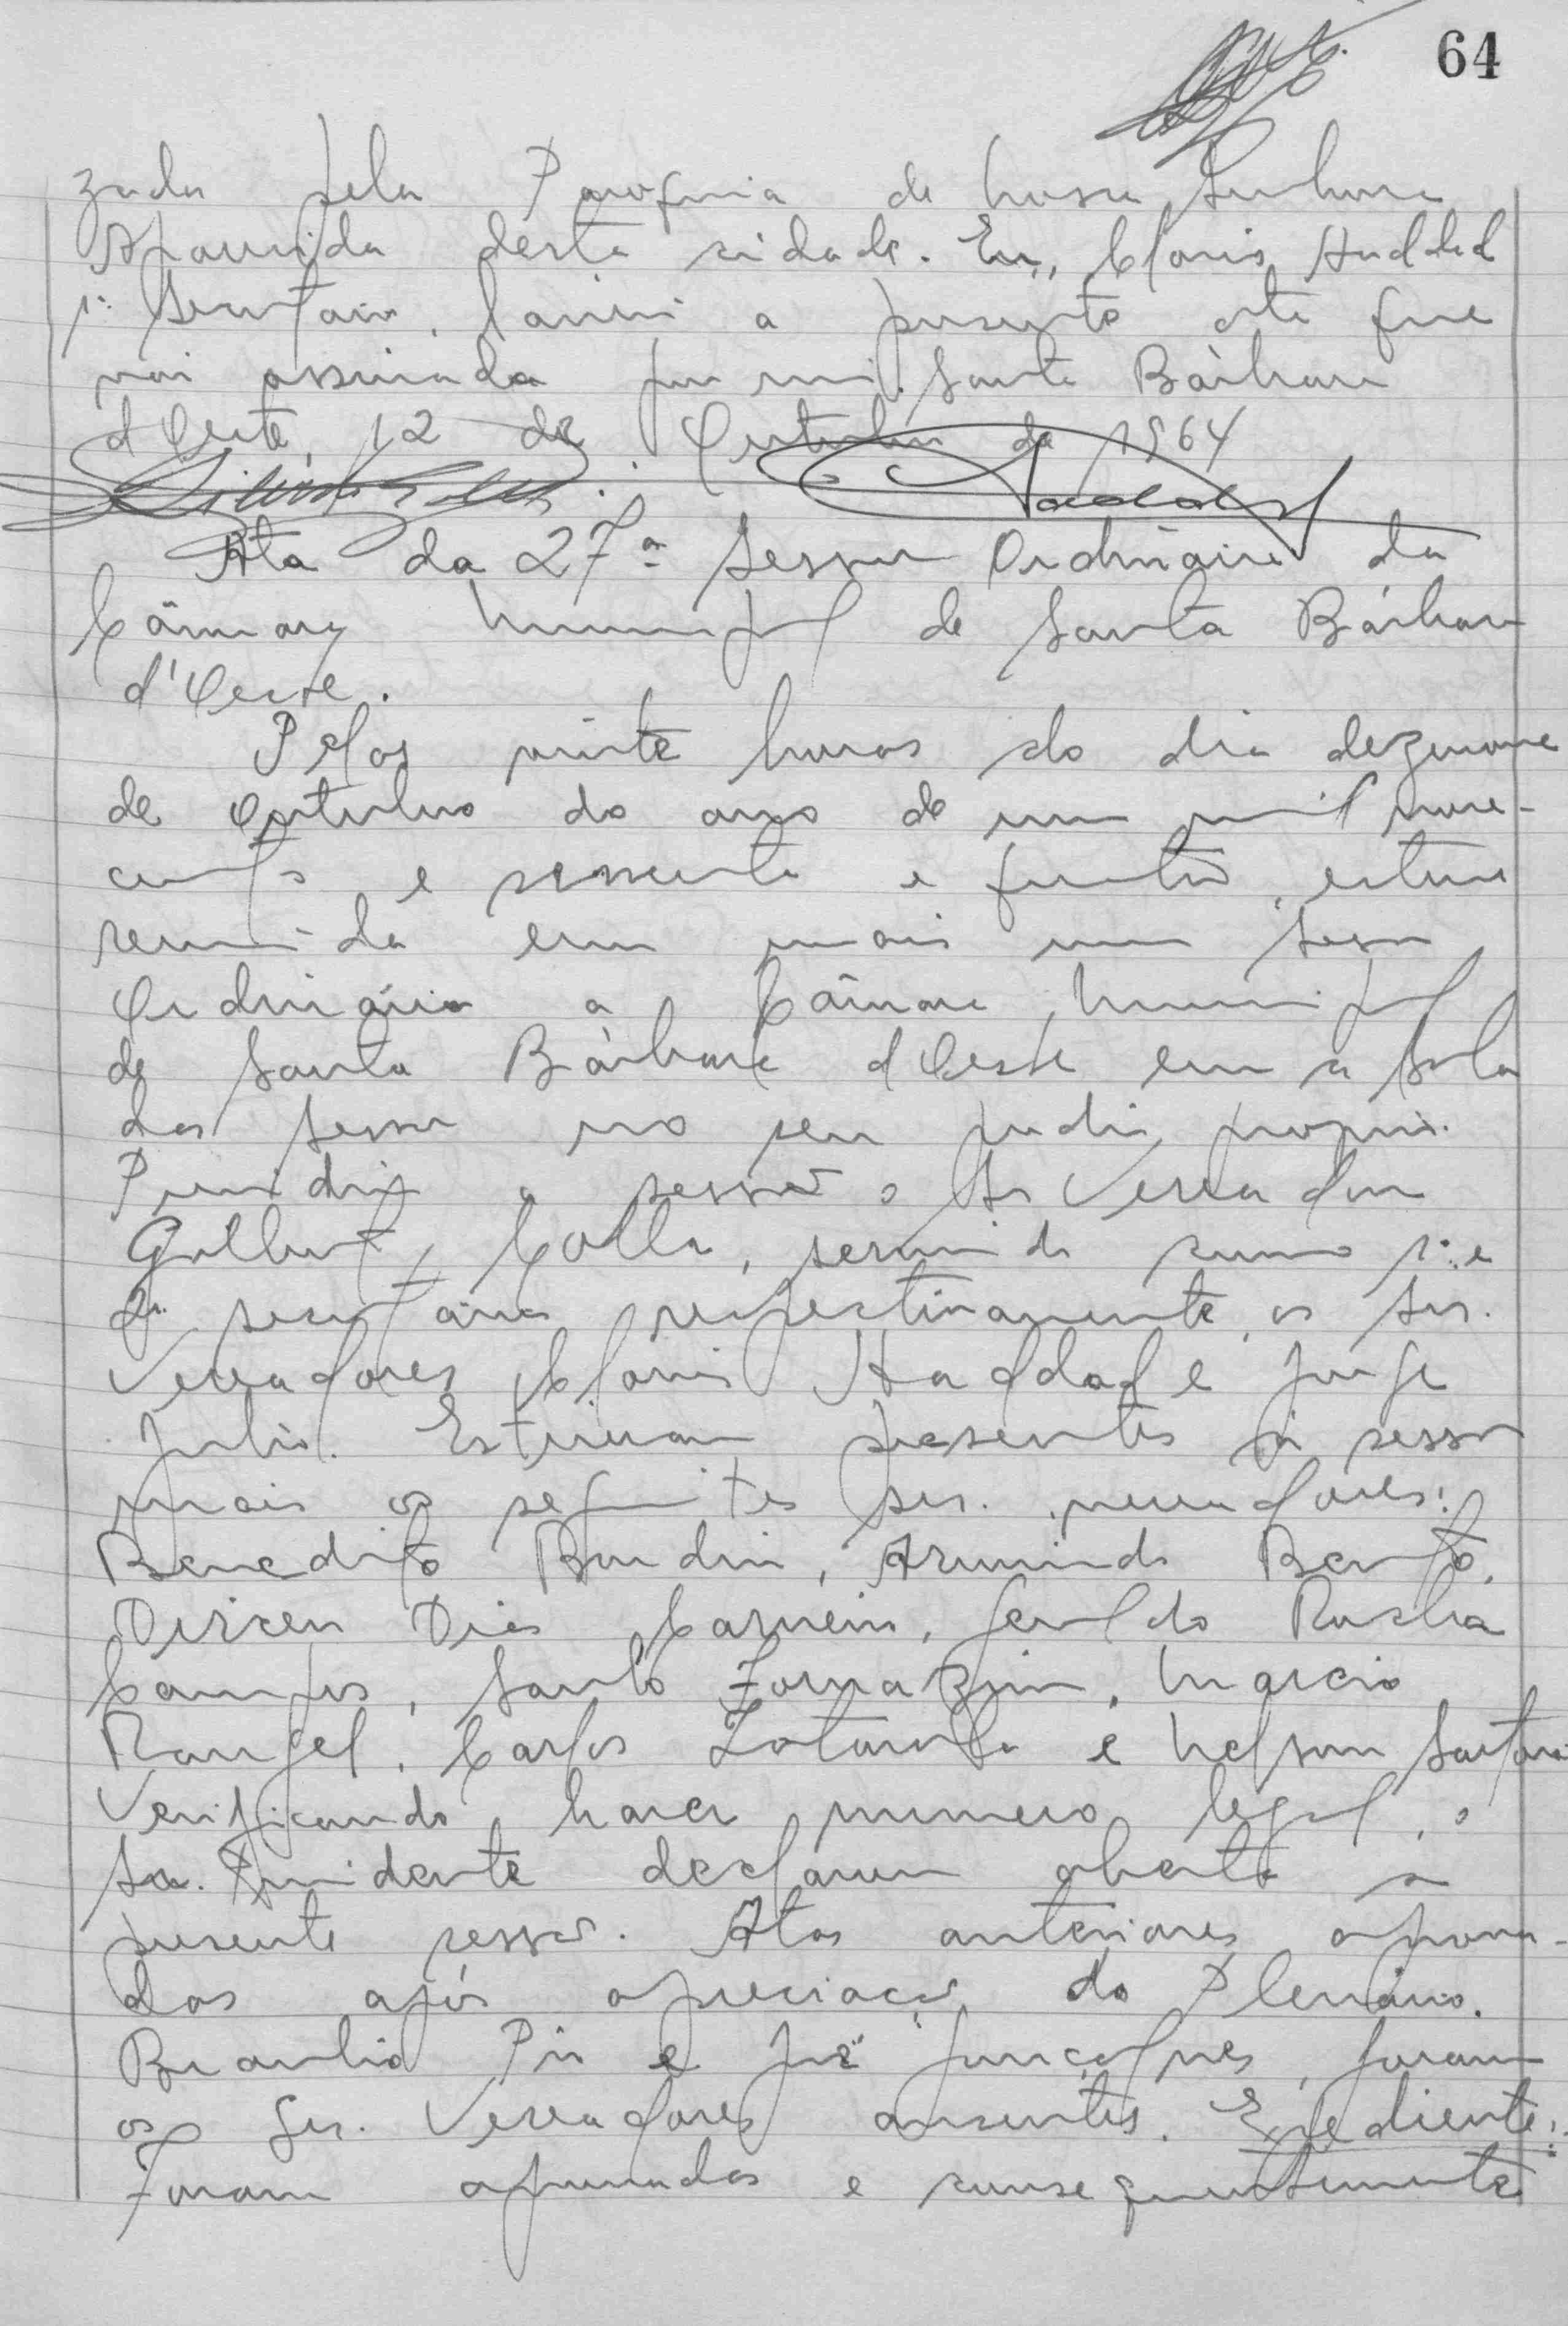 64
zada pela Paroquia de Nossa Senhora
Aparecida desta cidade. Eu, Clovis Haddad
1º Secretario, lavrei a presente ata que
vai assinada por mim. Santa Bárbara
d'Oeste, 12 de Outubro de 1964
Haddad
Ata da 27ª Sessão Ordinária da
Câmara Municipal de Santa Bárbara
d'Oeste.
Pelas vinte horas do dia dezenove
de Outubro do ano de um mil nove-
centos e sessenta e quatro, esteve
reunida em mais uma Sessão
Ordinária a Câmara Municipal
de Santa Bárbara d'Oeste em a Sala
das Sessões no seu predio proprio.
Presidiu a sessão o Sr. Vereador
Colla, servindo como 1º e
2º secretarios respectivamente, os Srs.
Vereadores Clovis Haddad e Jorge
Julio. Estiveram presentes à sessão
mais os seguintes Srs. vereadores:
Benedito Bordin, Armindo Bento,
Dirceu Dias Carneiro, Geraldo Rocha
Campos, Santo Fornazim, Marcio
Rangel, Carlos e Nelson Sartori
Verificando haver numero legal, o
Sr. Presidente declarou aberta a
presente sessão. Atas anteriores aprova-
das após apreciação do Plenário.
Braulio Pio e José Gonçalves, foram
os Srs. Vereadores ausentes. Expediente:
Foram aprovadas e consequentemente